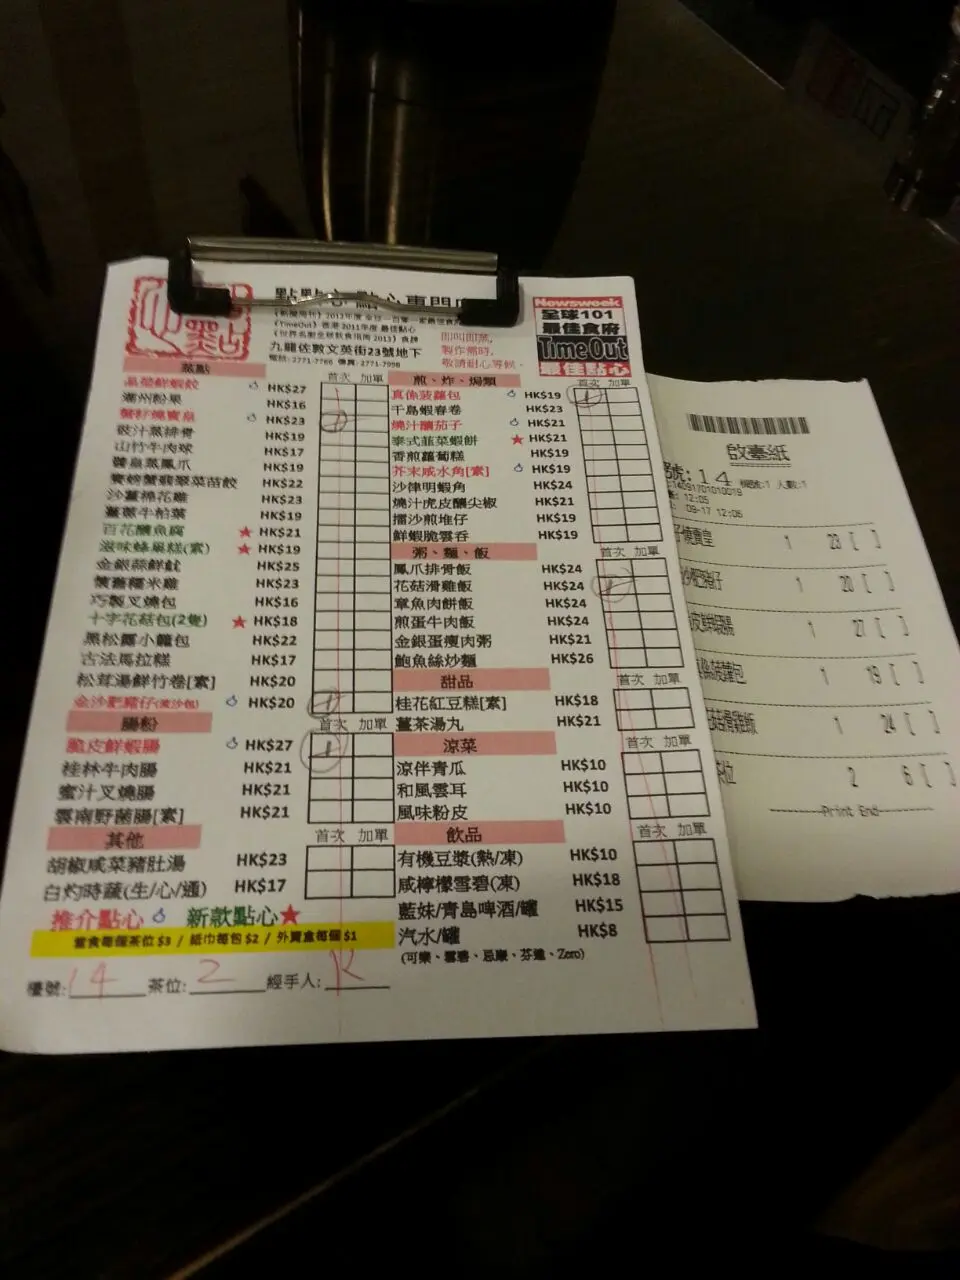 點點心 點心專門
《新聞周刊》2012年度 全球一百零一家最佳食府
《TimeOut》香港 2011年度 最佳點心
九龍佐敦文英街23號地下
電話: 2771-7766 傳真: 2771-7998
即叫即蒸,
製作需時,
敬請耐心等候.
Newsweek
全球101
最佳食府
TimeOut
最佳點心
蒸點 首次 加單
晶瑩鮮蝦餃 HK$27
潮州粉果 HK$16
蟹籽燒賣皇 HK$23 1
豉汁蒸排骨 HK$19
山竹牛肉球 HK$17
醬皇蒸鳳爪 HK$19
翡翠菜苗餃 HK$22
沙薑棉花雞 HK$23
薑蔥牛柏葉 HK$19
百花釀魚腐 ★ HK$21
滋味蜂巢糕(素) ★ HK$19
金銀蒜鮮魷 HK$25
懷舊糯米雞 HK$23
巧製叉燒包 HK$16
十字花菇包(2隻) ★ HK$18
黑松露小籠包 HK$22
古法馬拉糕 HK$17
松茸湯鮮竹卷[素] HK$20
金沙肥豬仔(流沙包) HK$20 1
腸粉 首次 加單
脆皮鮮蝦腸 HK$27 1
桂林牛肉腸 HK$21
蜜汁叉燒腸 HK$21
雲南野菌腸[素] HK$21
其他 首次 加單
胡椒咸菜豬肚湯 HK$23
白灼時蔬(生/心/通) HK$17
推介點心 新款點心★
堂食每個茶位 $3 / 紙巾每包 $2 / 外賣盒每個 $1
檯號: 14 茶位: 2 經手人: K
煎、炸、焗類 首次 加單
真係菠蘿包 HK$19 1
千島蝦春卷 HK$23
燒汁釀茄子 HK$21
泰式韭菜蝦餅 ★ HK$21
香煎蘿蔔糕 HK$19
芥末咸水角[素] HK$19
沙律明蝦角 HK$24
燒汁虎皮釀尖椒 HK$21
擂沙煎堆仔 HK$19
鮮蝦脆雲吞 HK$19
粥、麵、飯 首次 加單
鳳爪排骨飯 HK$24
花菇滑雞飯 HK$24 1
章魚肉餅飯 HK$24
煎蛋牛肉飯 HK$24
金銀蛋瘦肉粥 HK$21
鮑魚絲炒麵 HK$26
甜品 首次 加單
桂花紅豆糕[素] HK$18
薑茶湯丸 HK$21
涼菜 首次 加單
涼伴青瓜 HK$10
和風雲耳 HK$10
風味粉皮 HK$10
飲品 首次 加單
有機豆漿(熱/凍) HK$10
咸檸檬雪碧(凍) HK$18
藍妹/青島啤酒/罐 HK$15
汽水/罐 HK$8
(可樂、雪碧、忌廉、芬達、Zero)
啟臺紙
號: 14 機號:1 人數:1
14091701010019
12:05
09-17 12:05
燒賣皇 1 23 [ ]
沙肥豬仔 1 20 [ ]
皮鮮蝦腸 1 27 [ ]
菠蘿包 1 19 [ ]
菇滑雞飯 1 24 [ ]
茶位 2 6 [ ]
Print End